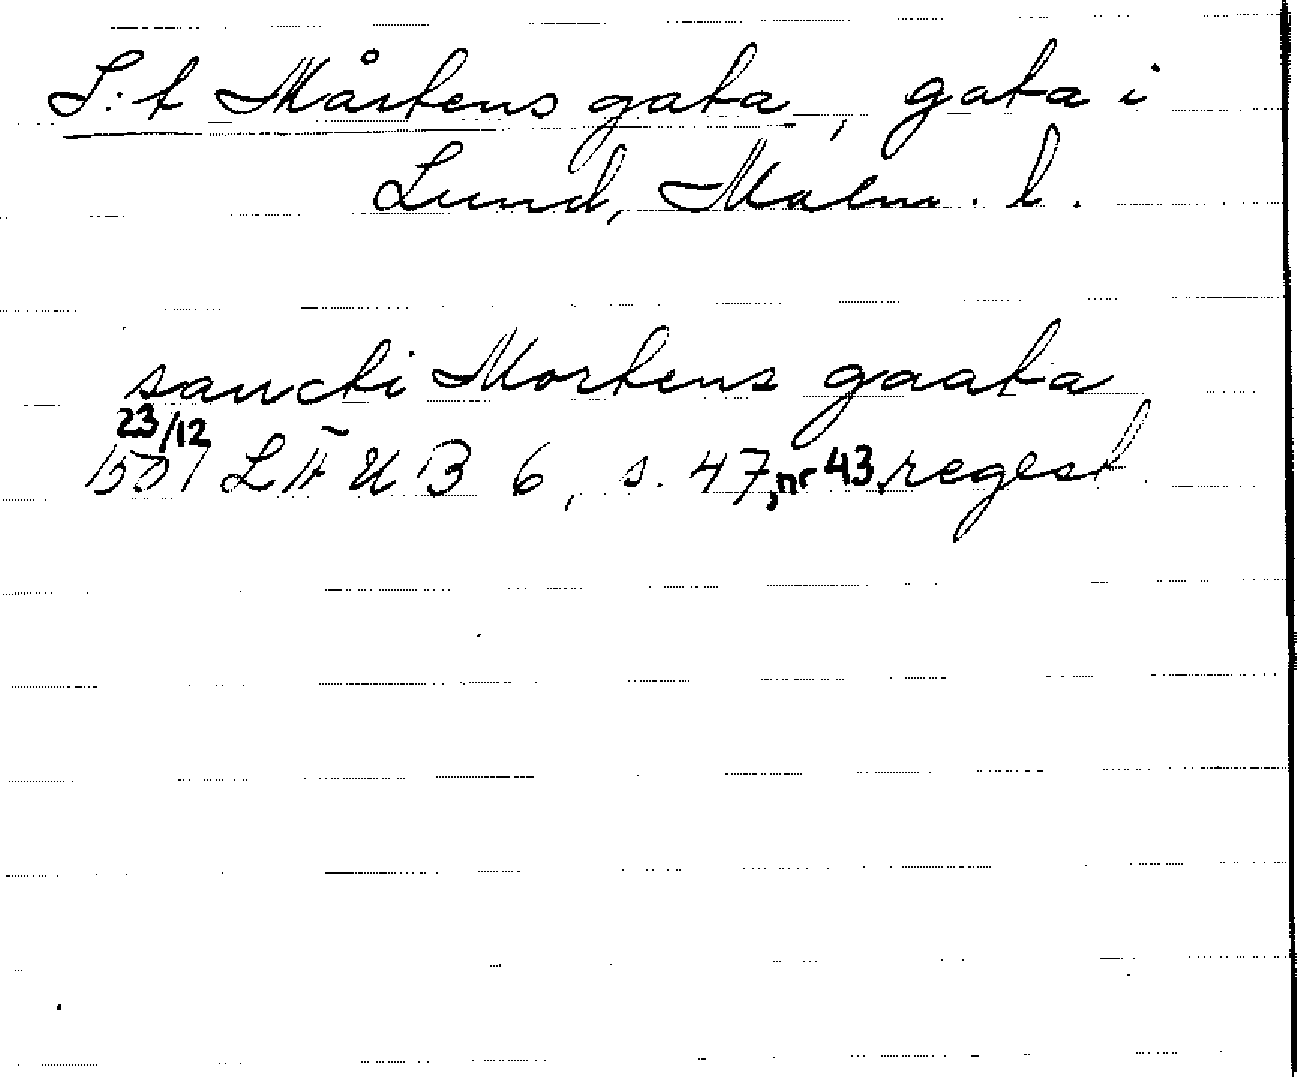 S:t Mårtens gata, gata i
Lund, Malm. l.
sancti Mortens gaata
23/12
1507 LÄUB 6, s. 47, nr 43, regest